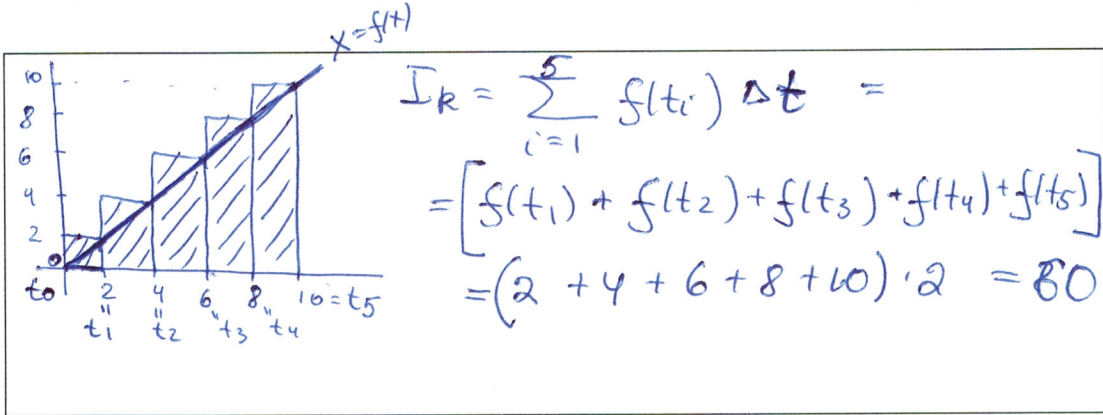 x = f(t)
10
8
6
4
2
0
t0 2 4 6 8 10 = t5
" " " "
t1 t2 t3 t4
I_R = ∑_{i=1}^{5} f(ti) Δt =
= [f(t1) + f(t2) + f(t3) + f(t4) + f(t5)]
= (2 + 4 + 6 + 8 + 10) · 2 = 60